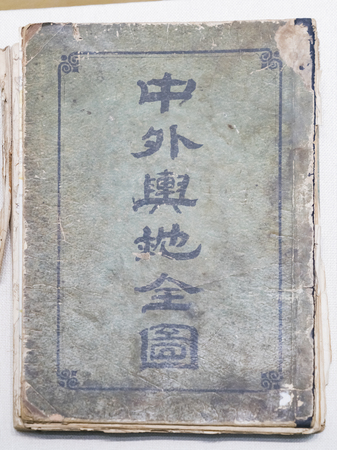 中外輿地全圖